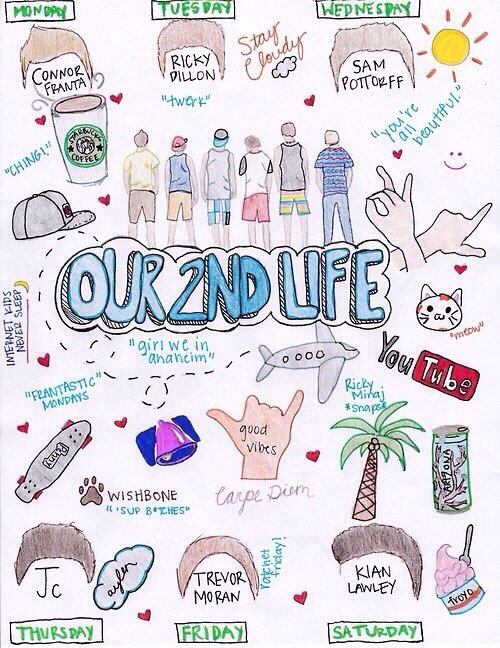 MONDAY
TUESDAY
WEDNESDAY
CONNOR
FRANTA
RICKY
DILLON
Stay
Cloudy
SAM
POTTORFF
"twerk"
"you're
all
beautiful."
STARBUCKS
COFFEE
"CHING!"
OUR 2ND LIFE
INTERNET KIDS
NEVER SLEEP
"girl we in
anaheim"
"meow"
You Tube
"FRANTASTIC"
MONDAYS
Ricky
Minaj
*snaps*
good
vibes
ARIZONA
WISHBONE
"'SUP B*TCHES"
Carpe Diem
Jc
TREVOR
MORAN
ratchet
friday!
KIAN
LAWLEY
froyo
THURSDAY
FRIDAY
SATURDAY